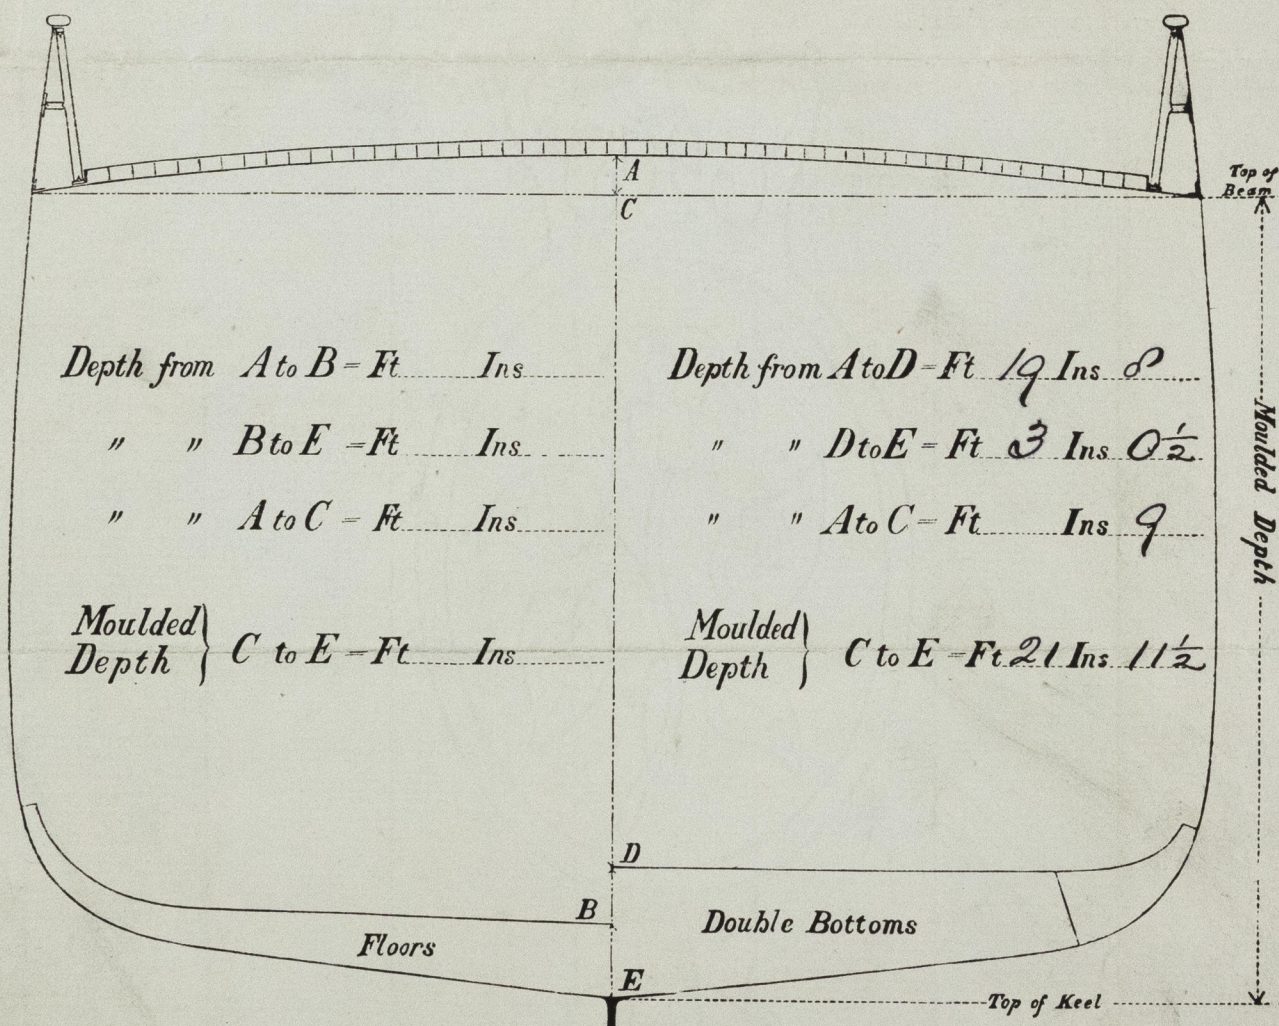 A
Top of
Beam
C
Depth from A to B = Ft Ins
" " B to E = Ft Ins
" " A to C = Ft Ins
Moulded
Depth } C to E = Ft Ins
Depth from A to D = Ft 19 Ins 8
" " D to E = Ft 3 Ins 0½
" " A to C = Ft Ins 9
Moulded
Depth } C to E = Ft 21 Ins 11½
Moulded Depth
D
B
Floors
Double Bottoms
E
Top of Keel